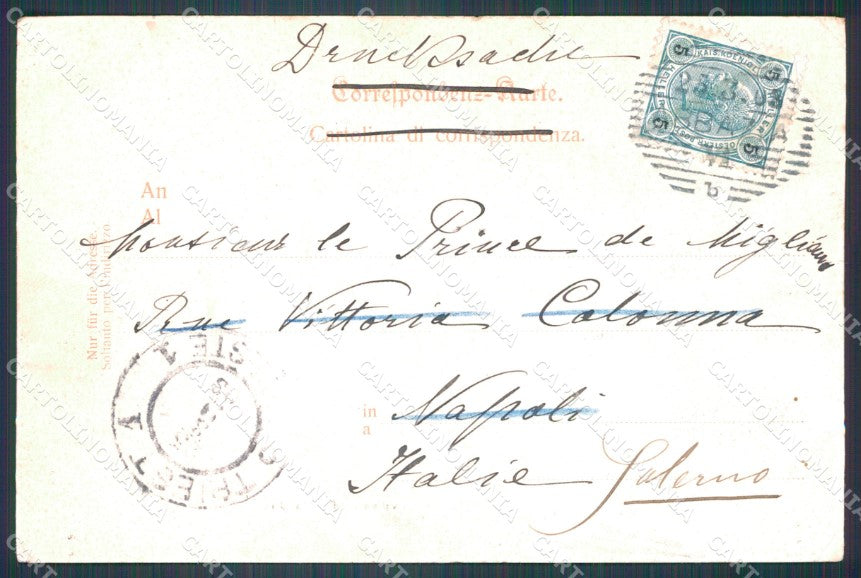 Drucksache
Correspondenz-Karte.
Cartolina di corrispondenza.
An
Al
Monsieur le Prince de Migliano
Rue Vittoria Colonna
in
a
Napoli
Italie Salerno
Nur für die Adresse.
Soltanto per l'indirizzo
5 5 5 5
TRIEST 1
TRIESTE 1
CARTOLINOMANIA